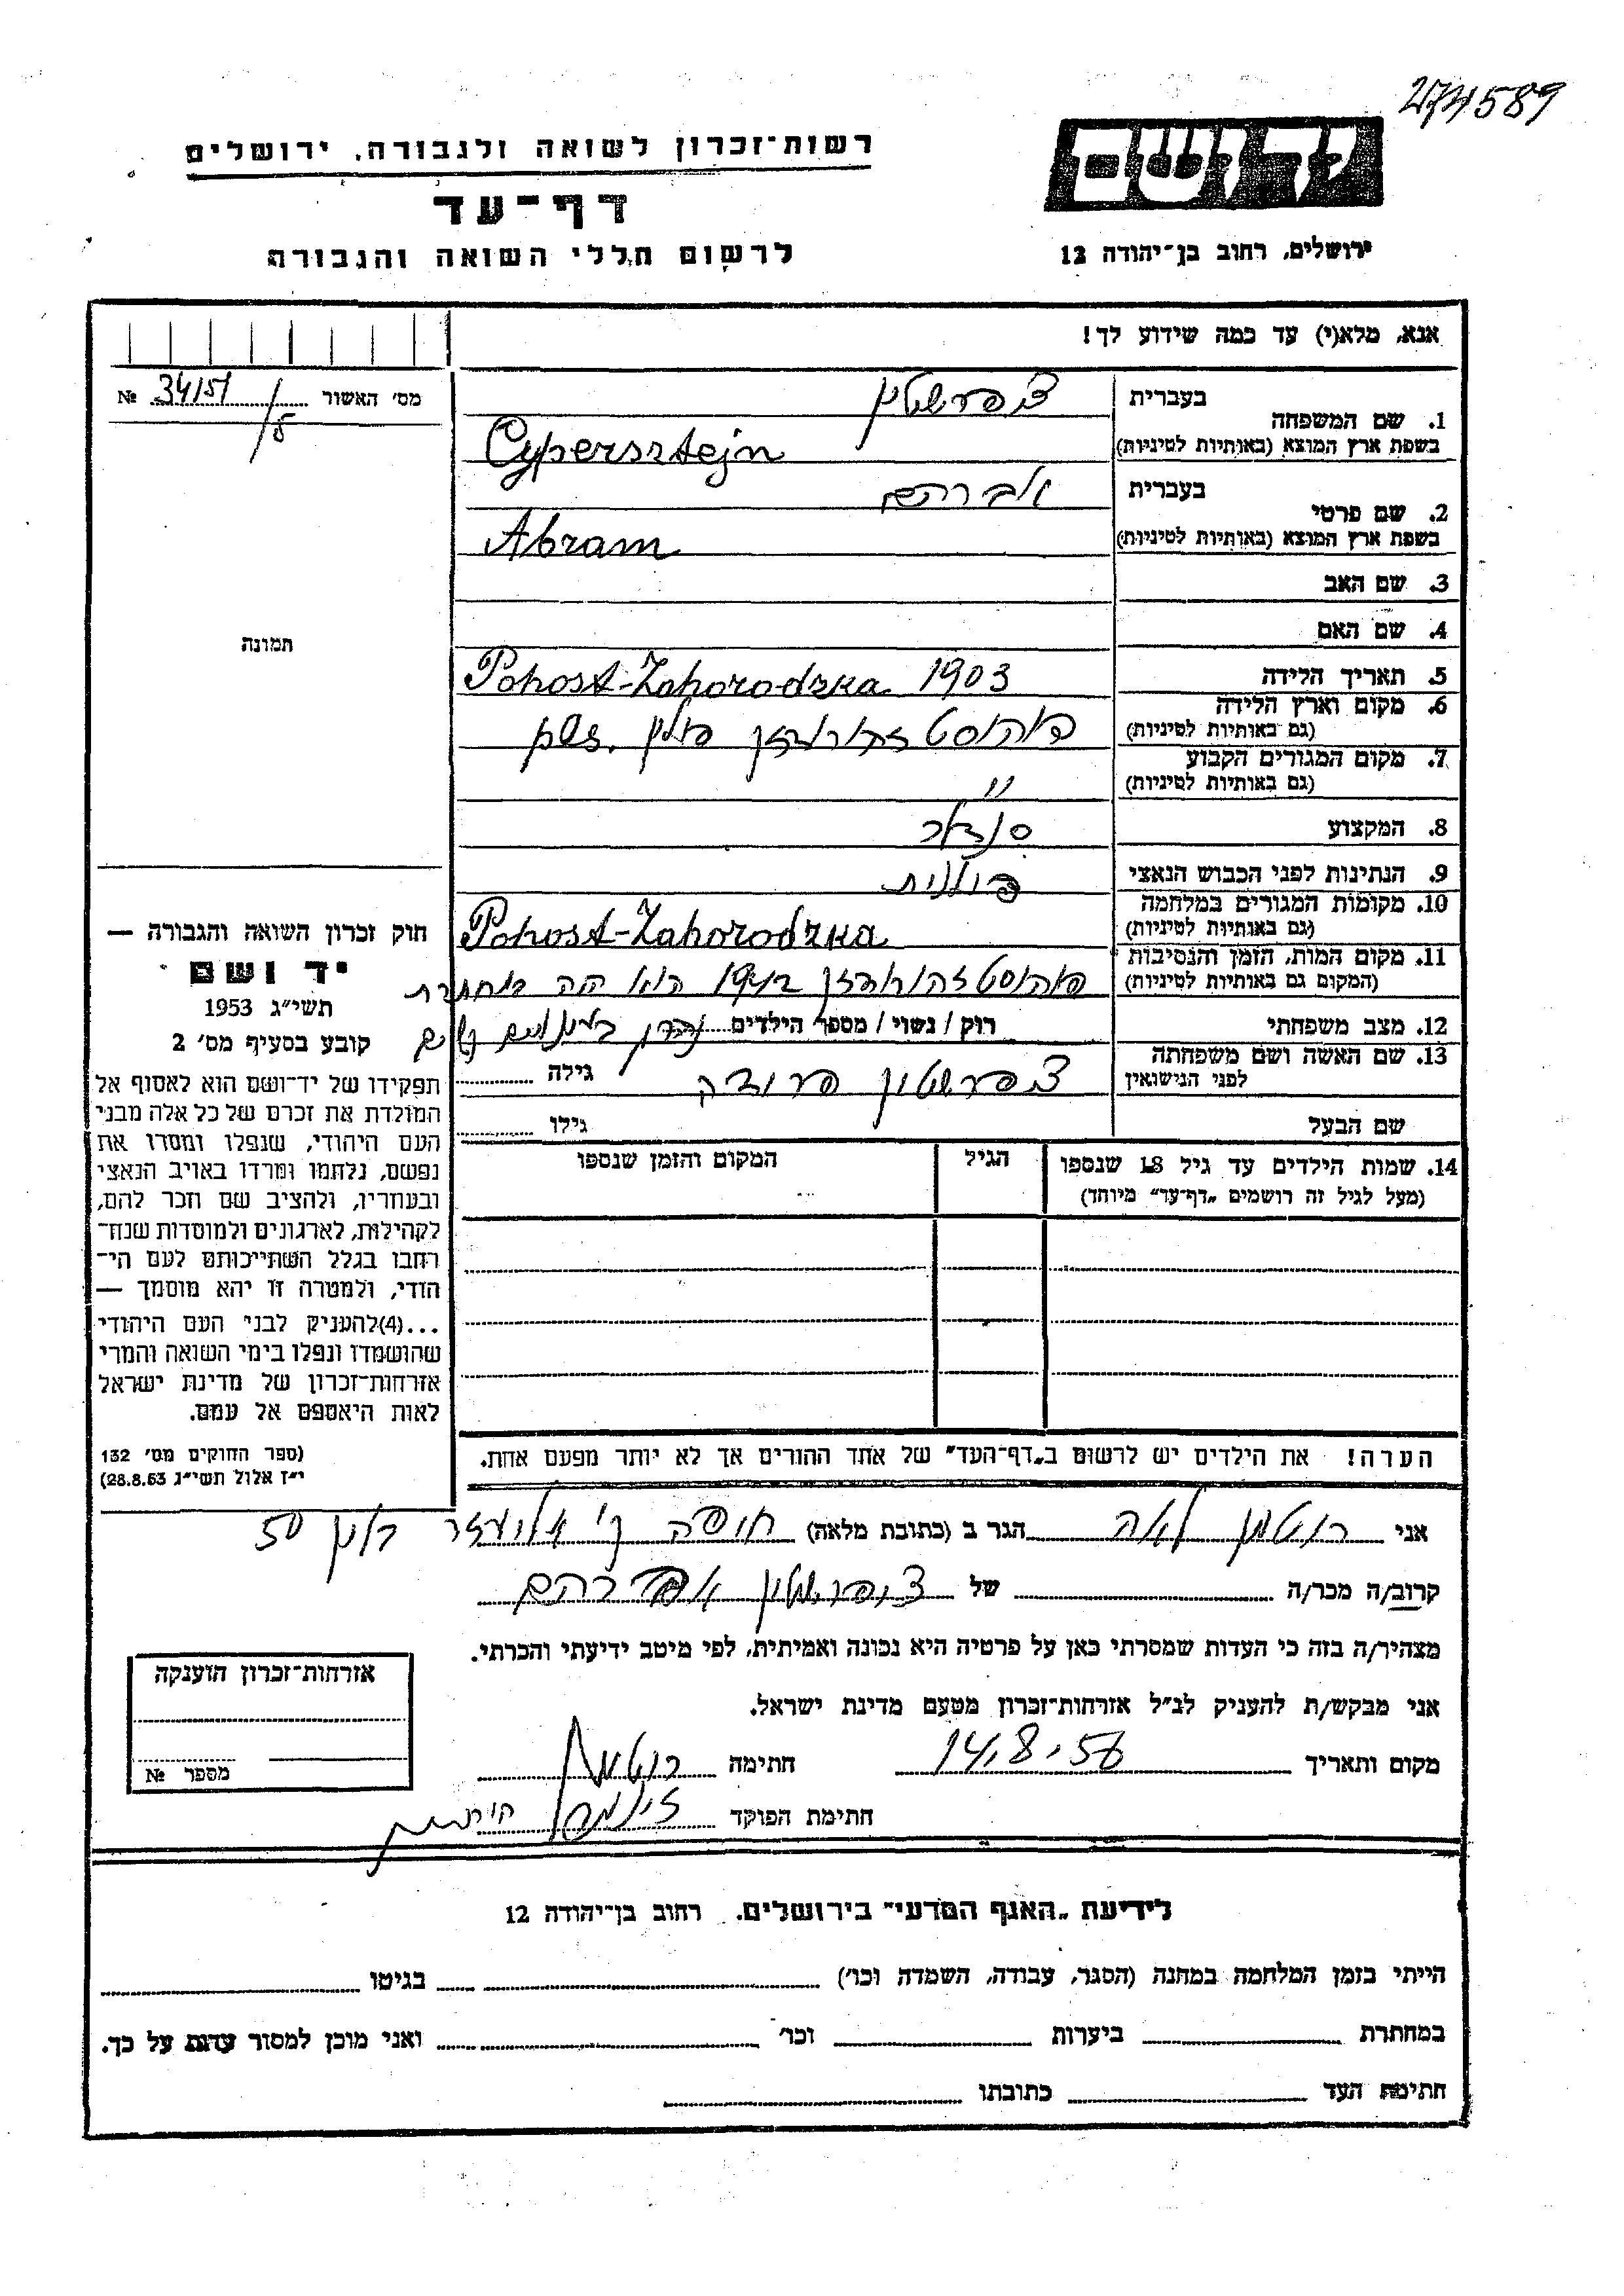 274589
רשות־זכרון לשואה ולגבורה, ירושלים
יד ושם
דף־עד
לרשום חללי השואה והגבורה
ירושלים, רחוב בן־יהודה 12
אנא, מלא(י) עד כמה שידוע לך!
מס׳ האשור № 34151/5
1. שם המשפחה בעברית צפרשטין
בשפת ארץ המוצא (באותיות לטיניות) Cypersztejn
2. שם פרטי בעברית אברהם
בשפת ארץ המוצא (באותיות לטיניות) Abram
3. שם האב
4. שם האם
תמונה
5. תאריך הלידה Pohost-Zahorodzka 1903
6. מקום וארץ הלידה (גם באותיות לטיניות) פולין
7. מקום המגורים הקבוע (גם באותיות לטיניות) "
8. המקצוע סנדלר
9. הנתינות לפני הכבוש הנאצי פולנית
10. מקומות המגורים במלחמה (גם באותיות לטיניות) Pohost-Zahorodzka
11. מקום המות, הזמן והנסיבות (המקום גם באותיות לטיניות) 1942 הוא היה
12. מצב משפחתי רוק / נשוי / מספר הילדים
13. שם האשה ושם משפחתה לפני הנישואין צפרשטין פרודה גילה
שם הבעל גילו
14. שמות הילדים עד גיל 18 שנספו הגיל המקום והזמן שנספו
(מעל לגיל זה רושמים „דף־עד״ מיוחד)
הערה! את הילדים יש לרשום ב„דף־העד״ של אחד ההורים אך לא יותר מפעם אחת.
חוק זכרון השואה והגבורה —
יד ושם
תשי״ג 1953
קובע בסעיף מס׳ 2
תפקידו של יד־ושם הוא לאסוף אל
המולדת את זכרם של כל אלה מבני
העם היהודי, שנפלו ומסרו את
נפשם, נלחמו ומרדו באויב הנאצי
ובעוזריו, ולהציב שם וזכר להם,
לקהילות, לארגונים ולמוסדות שנח־
רבו בגלל השתייכותם לעם הי־
הודי, ולמטרה זו יהא מוסמך —
...(4)להעניק לבני העם היהודי
שהושמדו ונפלו בימי השואה והמרי
אזרחות־זכרון של מדינת ישראל
לאות היאספם אל עמם.
(ספר החוקים מס׳ 132
י״ז אלול תשי״ג 28.8.53)
אני רוטמן לאה הגר ב (כתובת מלאה) חיפה 50
קרוב/ה מכר/ה של ציפרשטין אברהם
מצהיר/ה בזה כי העדות שמסרתי כאן על פרטיה היא נכונה ואמיתית, לפי מיטב ידיעתי והכרתי.
אני מבקש/ת להעניק לנ״ל אזרחות־זכרון מטעם מדינת ישראל.
מקום ותאריך 14.8.56 חתימה רוטמן
חתימת הפוקד
אזרחות־זכרון הוענקה
מספר №
לידיעת „האגף המדעי״ בירושלים, רחוב בן־יהודה 12
הייתי בזמן המלחמה במחנה (הסגר, עבודה, השמדה וכו׳) בגיטו
במחתרת ביערות וכו׳ ואני מוכן למסור עדות על כך.
חתימת העד כתובתו